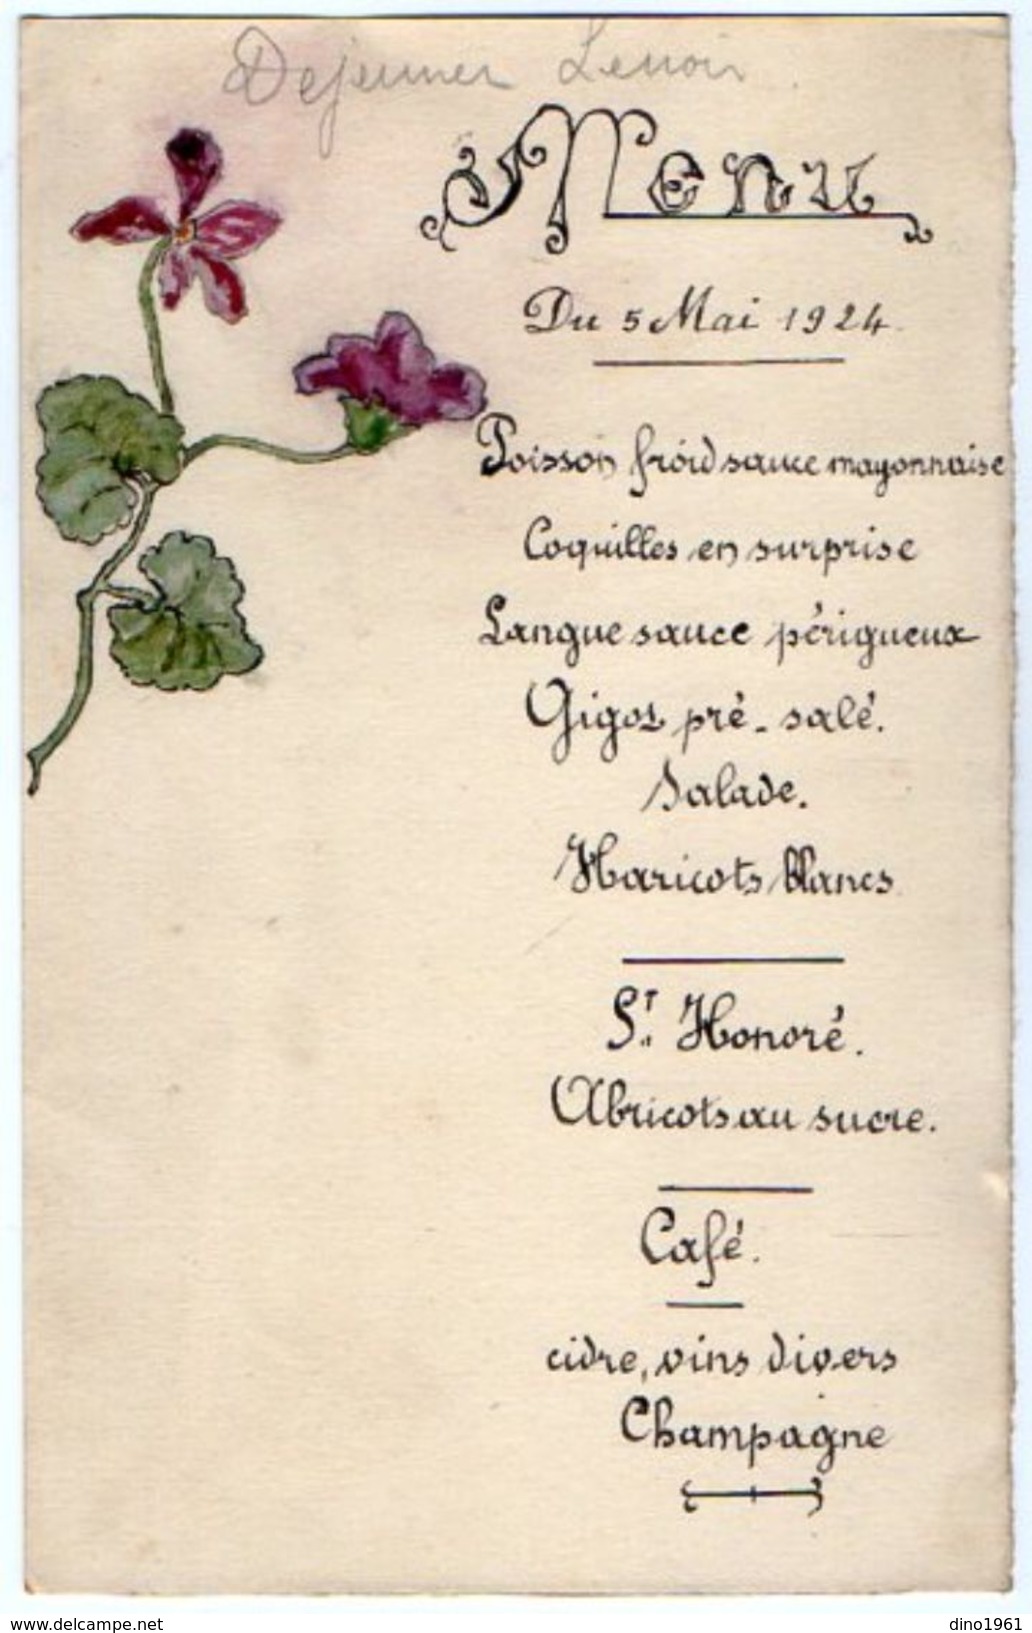 Dejeuner Lenoir
Menu
Du 5 Mai 1924.
Poisson froid sauce mayonnaise
Coquilles en surprise
Langue sauce périgueux
Gigot pré-salé.
Salade.
Haricots blancs
St. Honoré.
Abricots au sucre.
Café.
cidre, vins divers
Champagne
www.delcampe.net
dino1961